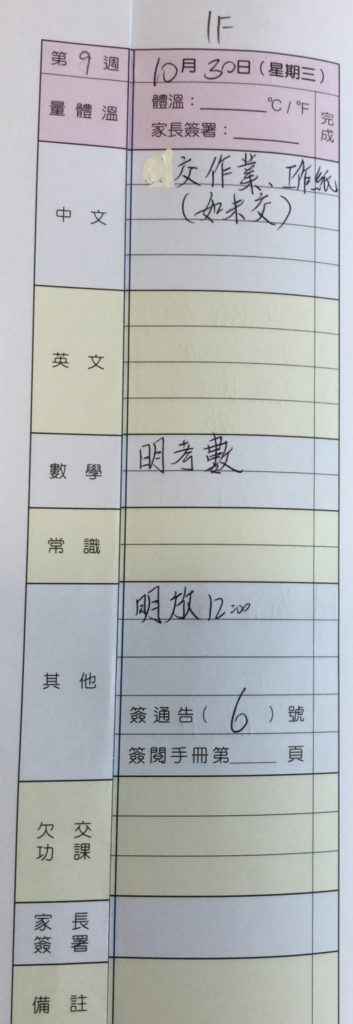 1F
第9週 10月30日(星期三)
量體溫 體溫：______℃/℉ 完成
家長簽署：______
中文 交作業、工作紙
(如未交)
英文
數學 明考數
常識
其他 明放12:00
簽通告(6)號
簽閱手冊第____頁
欠交功課
家長簽署
備註